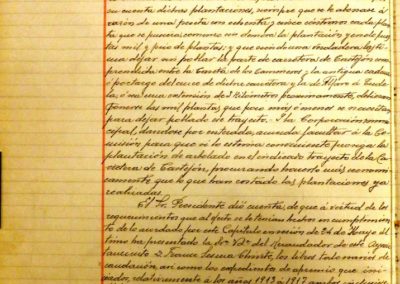 su cuenta dichas plantaciones, siempre que se le abonase á
razón de una peseta con ochenta y cinco céntimos cada plan-
ta que se pusiera comunes sin demora la plantación y en de pues-
tas mil y pico de plantas; y que siendo una verdadera lasti-
ma dejar sin poblar la parte de carretera de Castejón
comprendida entre la Caseta de los Camineros y la antigua cadena
ó portazgo del cruce de dicha carretera y la de Alfaro á Tude-
la, ó sea una extensión de 3 kilómetros proximamente, debían
ponerse las mil plantas que poco más ó menos se necesitan
para dejar poblado ese trayecto. Y la Corporación muni-
cipal, dandose por enterada, acuerda facultar á la Co-
misión para que si lo estima conveniente proponga la
plantación de arbolado en el indicado trayecto de la Ca-
rretera de Castejón, procurando hacerlo más económi-
camente que lo que han costado las plantaciones ya
realizadas.
El Sr. Presidente dió cuenta, de que á virtud de los
requerimientos que al efecto se le tenían hechos en cumplimien-
to de lo acordado por este Capítulo en sesión de 24 de Mayo úl-
timo ha presentado la Sra. Vda. del Recaudador de este Ayun-
tamiento D. los libros talonarios de re-
caudación, así como los expedientes de apremio que ini-
ciados, relativamente á los años 1913 á 1917 ambos inclusive